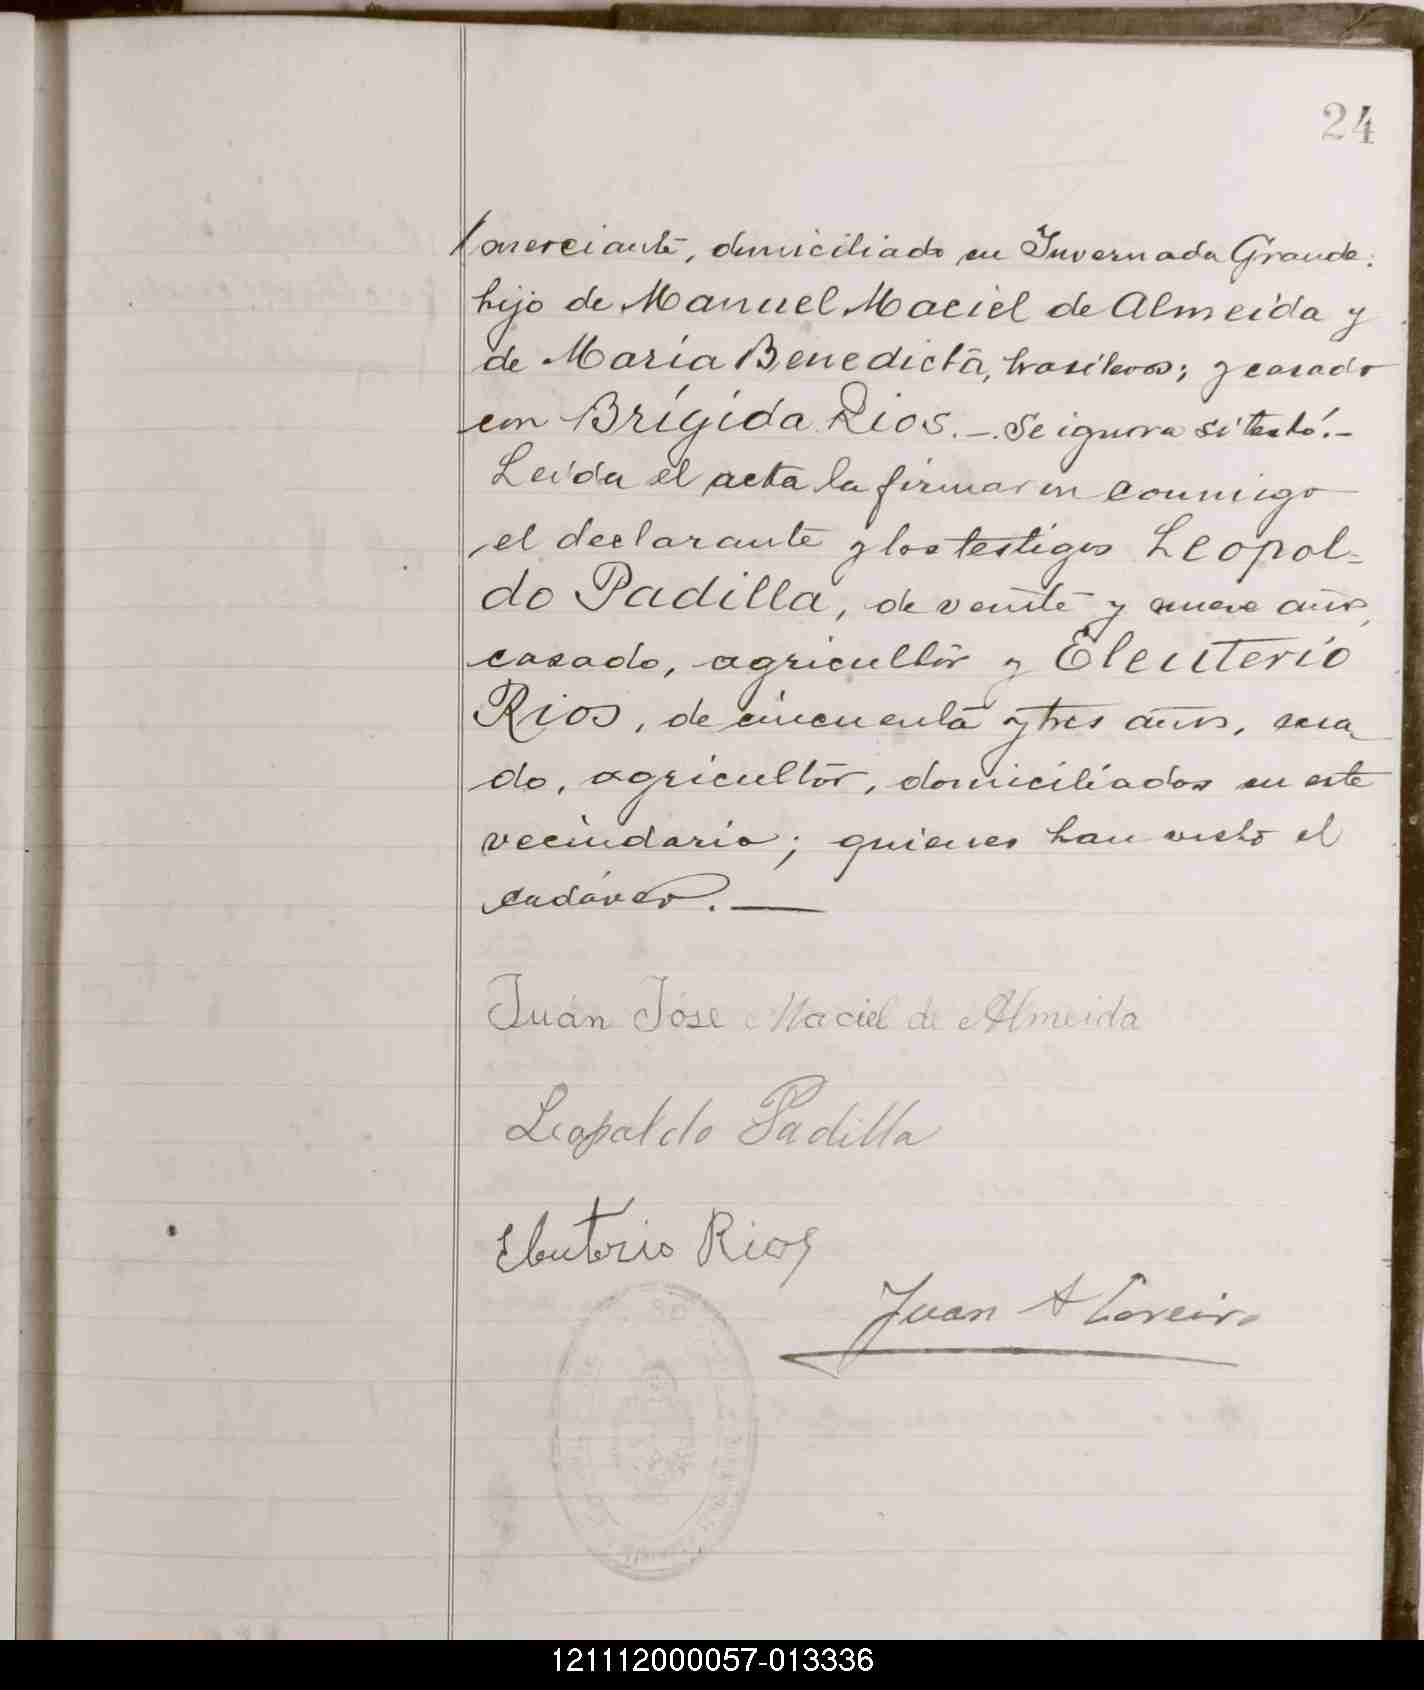 24
comerciante, domiciliado en Invernada Grande:
hijo de Manuel Maciel de Almeida y
de María Benedicta, brasileros; y casado
con Brígida Rios. —. Se ignora si testó. —
Leída el acta la firmaron conmigo
el declarante y los testigos Leopol-
do Padilla, de veinte y nueve años,
casado, agricultor y Eleuterio
Rios, de cincuenta y tres años, casa
do, agricultor, domiciliados en este
vecindario; quienes han visto el
cadáver. —
Juán José Maciel de Almeida
Leopoldo Padilla
Eleuterio Rios
Juan A
121112000057-013336